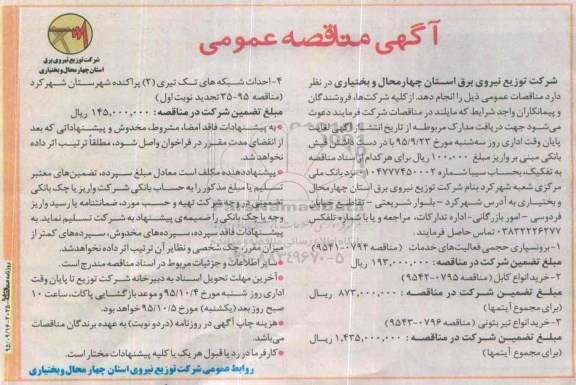 آگهی مناقصه عمومی
شرکت توزیع نیروی برق
استان چهارمحال و بختیاری
شرکت توزیع نیروی برق استان چهارمحال و بختیاری در نظر
دارد مناقصات عمومی ذیل را انجام دهد. از کلیه شرکت‌ها، فروشندگان
و پیمانکاران واجد شرایط که مایلند در مناقصات شرکت فرمایند دعوت
می‌شود جهت دریافت مدارک مربوطه از تاریخ انتشار آگهی لغایت
پایان وقت اداری روز سه‌شنبه مورخ ۹۵/۹/۲۳ با در دست داشتن فیش
بانکی مبنی بر واریز مبلغ ۱۰۰،۰۰۰ ریال برای هر کدام از اسناد مناقصه
به تفکیک، بحساب سیبا شماره ۰۱۰۴۷۷۷۴۵۰۰۰۲ نزد بانک ملی
مرکزی شعبه شهرکرد بنام شرکت توزیع نیروی برق استان چهارمحال
و بختیاری به آدرس شهرکرد - بلوار شریعتی - تقاطع خیابان
فردوسی - امور بازرگانی - اداره تدارکات، مراجعه و یا با شماره تلفکس
۰۳۸۳۲۲۲۶۲۷۷ تماس حاصل فرمایند.
۱- برونسپاری حجمی فعالیت‌های خدمات (مناقصه ۰۷۹۴-۹۵۴۱)
مبلغ تضمین شرکت در مناقصه: ۱۹۳،۰۰۰،۰۰۰ ریال
۲- خرید انواع کابل (مناقصه ۰۷۹۵-۹۵۴۲)
مبلغ تضمین شرکت در مناقصه: ۸۷۳،۰۰۰،۰۰۰ ریال
(برای مجموع آیتمها)
۳- خرید انواع تیر بتونی (مناقصه ۰۷۹۶-۹۵۴۳)
مبلغ تضمین شرکت در مناقصه: ۱،۴۳۵،۰۰۰،۰۰۰ ریال
(برای مجموع آیتمها)
۴- احداث شبکه های تک تیری (۲) پراکنده شهرستان شهرکرد
(مناقصه ۹۵-۳۵ تجدید نوبت اول)
مبلغ تضمین شرکت در مناقصه: ۱۴۵،۰۰۰،۰۰۰ ریال
به پیشنهادات فاقد امضا، مشروط، مخدوش و پیشنهاداتی که بعد
از انقضای مدت مقرر در فراخوان واصل شود، مطلقاً ترتیب اثر داده
نخواهد شد.
پیشنهاددهنده مکلف است معادل مبلغ سپرده، تضمین‌های معتبر
تسلیم یا مبلغ مذکور را به حساب بانکی شرکت واریز یا چک بانکی
تضمینی در وجه شرکت تهیه و حسب مورد، ضمانتنامه یا رسید واریز
وجه یا چک بانکی را ضمیمه‌ی پیشنهاد به شرکت تسلیم نماید. به
پیشنهادات فاقد سپرده، سپرده‌های مخدوش، سپرده‌های کمتر از
میزان مقرر، چک شخصی و نظایر آن ترتیب اثر داده نخواهد شد.
سایر اطلاعات و جزئیات مربوط در اسناد مناقصه مندرج است.
آخرین مهلت تحویل اسناد به دبیرخانه شرکت توزیع تا پایان وقت
اداری روز شنبه مورخ ۹۵/۱۰/۴ و موعد بازگشایی پاکات، ساعت ۱۰
صبح روز بعد (یکشنبه) مورخ ۹۵/۱۰/۵ خواهد بود.
هزینه چاپ آگهی در روزنامه (در دو نوبت) به عهده برندگان مناقصات
می‌باشد.
کارفرما در رد یا قبول هر یک یا کلیه پیشنهادات مختار است.
روابط عمومی شرکت توزیع نیروی استان چهارمحال و بختیاری